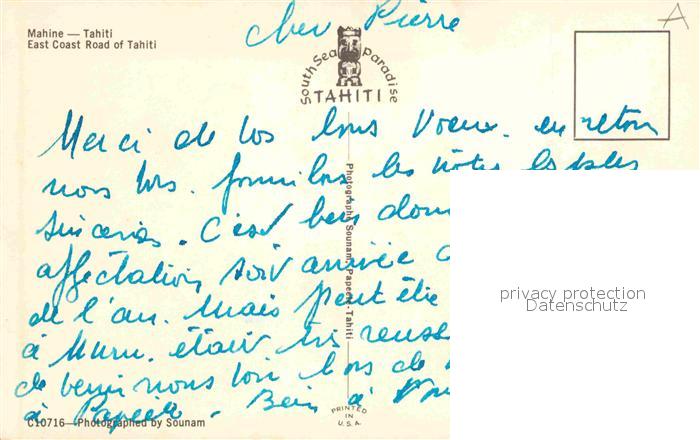 Mahine — Tahiti
East Coast Road of Tahiti
Cher Pierre
South Sea Paradise
TAHITI
Merci de vos bons voeux. en retour
nous vous les notres les plus
sinceres. C'est bien dom
affectation soit arrivée
de l'an. Mais peut être
à Muru. était très reuss
de venir nous voir lors de
à Papeete. Bien à
Photograph: Sounam, Papeete, Tahiti
C10716—Photographed by Sounam
PRINTED
IN
U.S.A.
privacy protection
Datenschutz